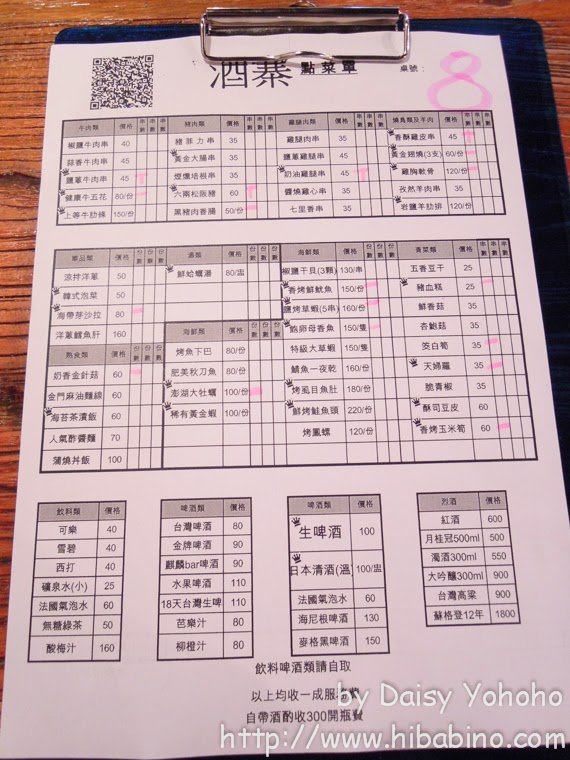 酒寨 點菜單 桌號： 8
牛肉類 價格 串數 串數 串數
椒鹽牛肉串 40
蒜香牛肉串 45
鹽蔥牛肉串 45
健康牛五花 80/份
上等牛肋條 150/份
豬肉類 價格 串數 串數 串數
豬菲力串 35
黃金大腸串 35
煙燻培根串 35
六兩松阪豬 60
黑豬肉香腸 50/份
雞腿肉類 價格 串數 串數 串數
雞腿肉串 35
鹽蔥雞腿串 45
奶油雞腿串 45
醬燒雞心串 35
七里香串 35
燒鳥類及羊肉 價格 串數 串數 串數
香酥雞皮串 45
黃金翅燒(3支) 60/份
雞胸軟骨 120/份
孜然羊肉串 35
岩鹽羊肋排 120/份
單品類 價格 份數 份數 份數
涼拌洋蔥 50
韓式泡菜 50
海帶芽沙拉 80
洋蔥鱈魚肝 160
熟食類 價格 份數 份數 份數
奶香金針菇 60
金門麻油麵線 60
海苔茶漬飯 60
人氣酢醬麵 70
蒲燒丼飯 100
湯類 價格 份數 份數 份數
鮮蛤蠣湯 80/盅
海鮮類 價格 份數 份數 份數
烤魚下巴 80/份
肥美秋刀魚 80/份
澎湖大牡蠣 100/份
稀有黃金蝦 100/份
海鮮類 價格 份數 份數 份數
椒鹽干貝(3顆) 130/串
香烤鮮魷魚 150/份
鹽烤草蝦(5串) 160/份
飽卵母香魚 150/隻
特級大草蝦 150/隻
鯖魚一夜乾 160/份
烤虱目魚肚 180/份
鮮烤鮭魚頭 220/份
烤鳳螺 120/份
青菜類 價格 串數 串數 串數
五香豆干 25
豬血糕 25
鮮香菇 35
杏鮑菇 35
筊白筍 35
天婦羅 35
脆青椒 35
酥司豆皮 60
香烤玉米筍 60
飲料類 價格
可樂 40
雪碧 40
西打 40
礦泉水(小) 25
法國氣泡水 60
無糖綠茶 50
酸梅汁 160
啤酒類 價格
台灣啤酒 80
金牌啤酒 90
麒麟bar啤酒 90
水果啤酒 110
18天台灣生啤 110
芭樂汁 80
柳橙汁 80
啤酒類 價格
生啤酒 100
日本清酒(溫) 100/盅
法國氣泡水 60
海尼根啤酒 130
麥格黑啤酒 150
烈酒 價格
紅酒 600
月桂冠500ml 500
濁酒300ml 550
大吟釀300ml 900
台灣高粱 500
蘇格登12年 1800
飲料啤酒類請自取
以上均收一成服務費
自帶酒酌收300開瓶費
by Daisy Yohoho
http://www.hibabino.com